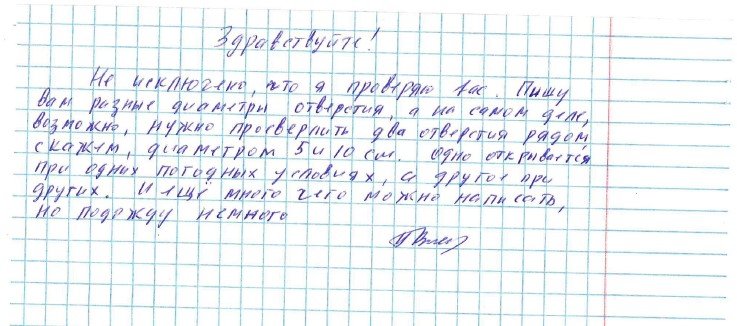 Здравствуйте!
Не исключено, что я проверяю вас. Пишу
вам разные диаметры отверстия, а на самом деле,
возможно, нужно просверлить два отверстия рядом,
скажем, диаметром 5 и 10 см. Одно открывается
при одних погодных условиях, а другое при
других. И ещё много чего можно написать,
но подожду немного